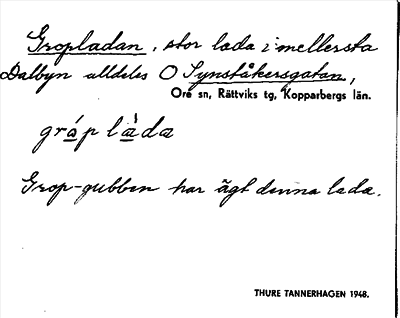 Gropladan, stor lada i mellersta
Dalbyn alldeles O Synståkersgatan,
Ore sn, Rättviks tg, Kopparbergs län.
gráp làda
Grop-gubben har ägt denna lada.
THURE TANNERHAGEN 1948.